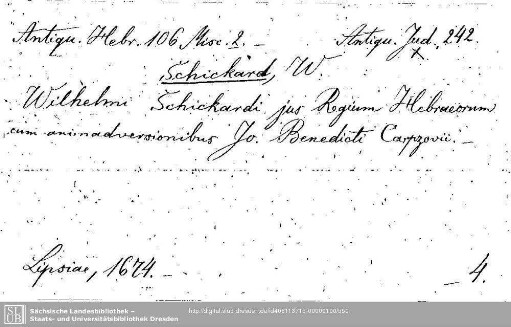 Antiqu. Hebr. 106 Misc. 2. — Antiqu. Jud. 242
x
Schickard, W
Wilhelmi Schickardi jus Regium Hebraeorum
cum animadversionibus Jo. Benedicti Carpzovii. —
Lipsiae, 1674. — — 4.
SLUB Sächsische Landesbibliothek –
Staats- und Universitätsbibliothek Dresden